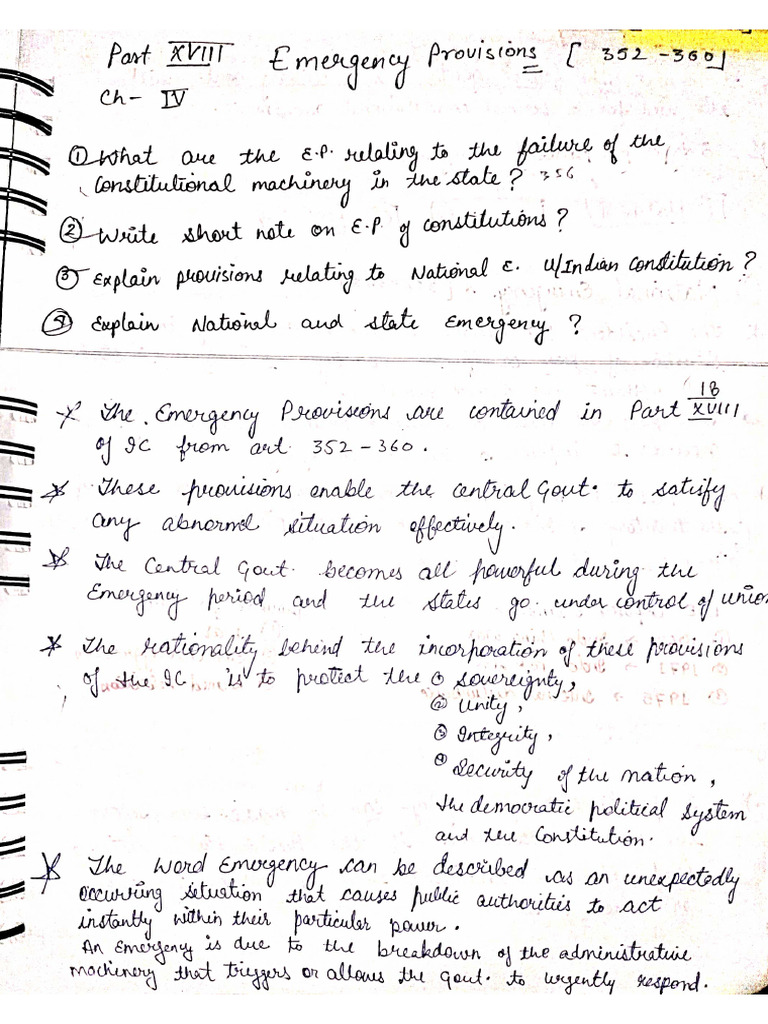 Part XVIII Emergency Provisions [ 352 - 360]
Ch- IV
① What are the E.P. relating to the failure of the
constitutional machinery in the state? 356
② Write short note on E.P. of constitutions?
③ Explain provisions relating to National E. u/Indian Constitution?
④ Explain National and state Emergency?
18
* The Emergency Provisions are contained in Part XVIII
of IC from art 352 - 360.
* These provisions enable the central Govt. to satisfy
any abnormal situation effectively.
* The Central Govt. becomes all powerful during the
Emergency period and the states go under control of union
* The rationality behind the incorporation of these provisions
of the IC is to protect the ① sovereignty,
② Unity,
③ Integrity,
④ Security of the nation,
the democratic political system
and the Constitution.
* The word Emergency can be described as an unexpectedly
occurring situation that causes public authorities to act
instantly within their particular power.
An Emergency is due to the breakdown of the administrative
machinery that triggers or allows the govt. to urgently respond.